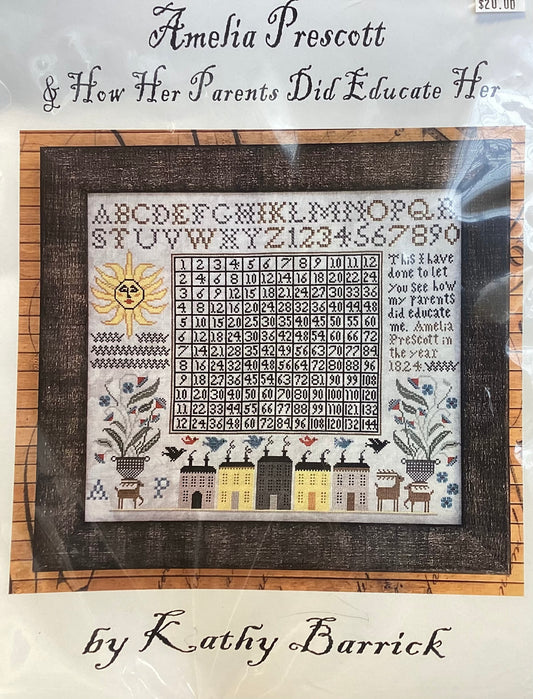 $20.00
Amelia Prescott
& How Her Parents Did Educate Her
ABCDEFGHIKLMNOPQR
STUVWXYZ1234567890
This I have
done to let
you see how
my parents
did educate
me. Amelia
Prescott in
the year
1824.
1 2 3 4 5 6 7 8 9 10 11 12
2 4 6 8 10 12 14 16 18 20 22 24
3 6 9 12 15 18 21 24 27 30 33 36
4 8 12 16 20 24 28 32 36 40 44 48
5 10 15 20 25 30 35 40 45 50 55 60
6 12 18 24 30 36 42 48 54 60 66 72
7 14 21 28 35 42 49 56 63 70 77 84
8 16 24 32 40 48 56 64 72 80 88 96
9 18 27 36 45 54 63 72 81 90 99 108
10 20 30 40 50 60 70 80 90 100 110 120
11 22 33 44 55 66 77 88 99 110 121 132
12 24 36 48 60 72 84 96 108 120 132 144
A P
by Kathy Barrick